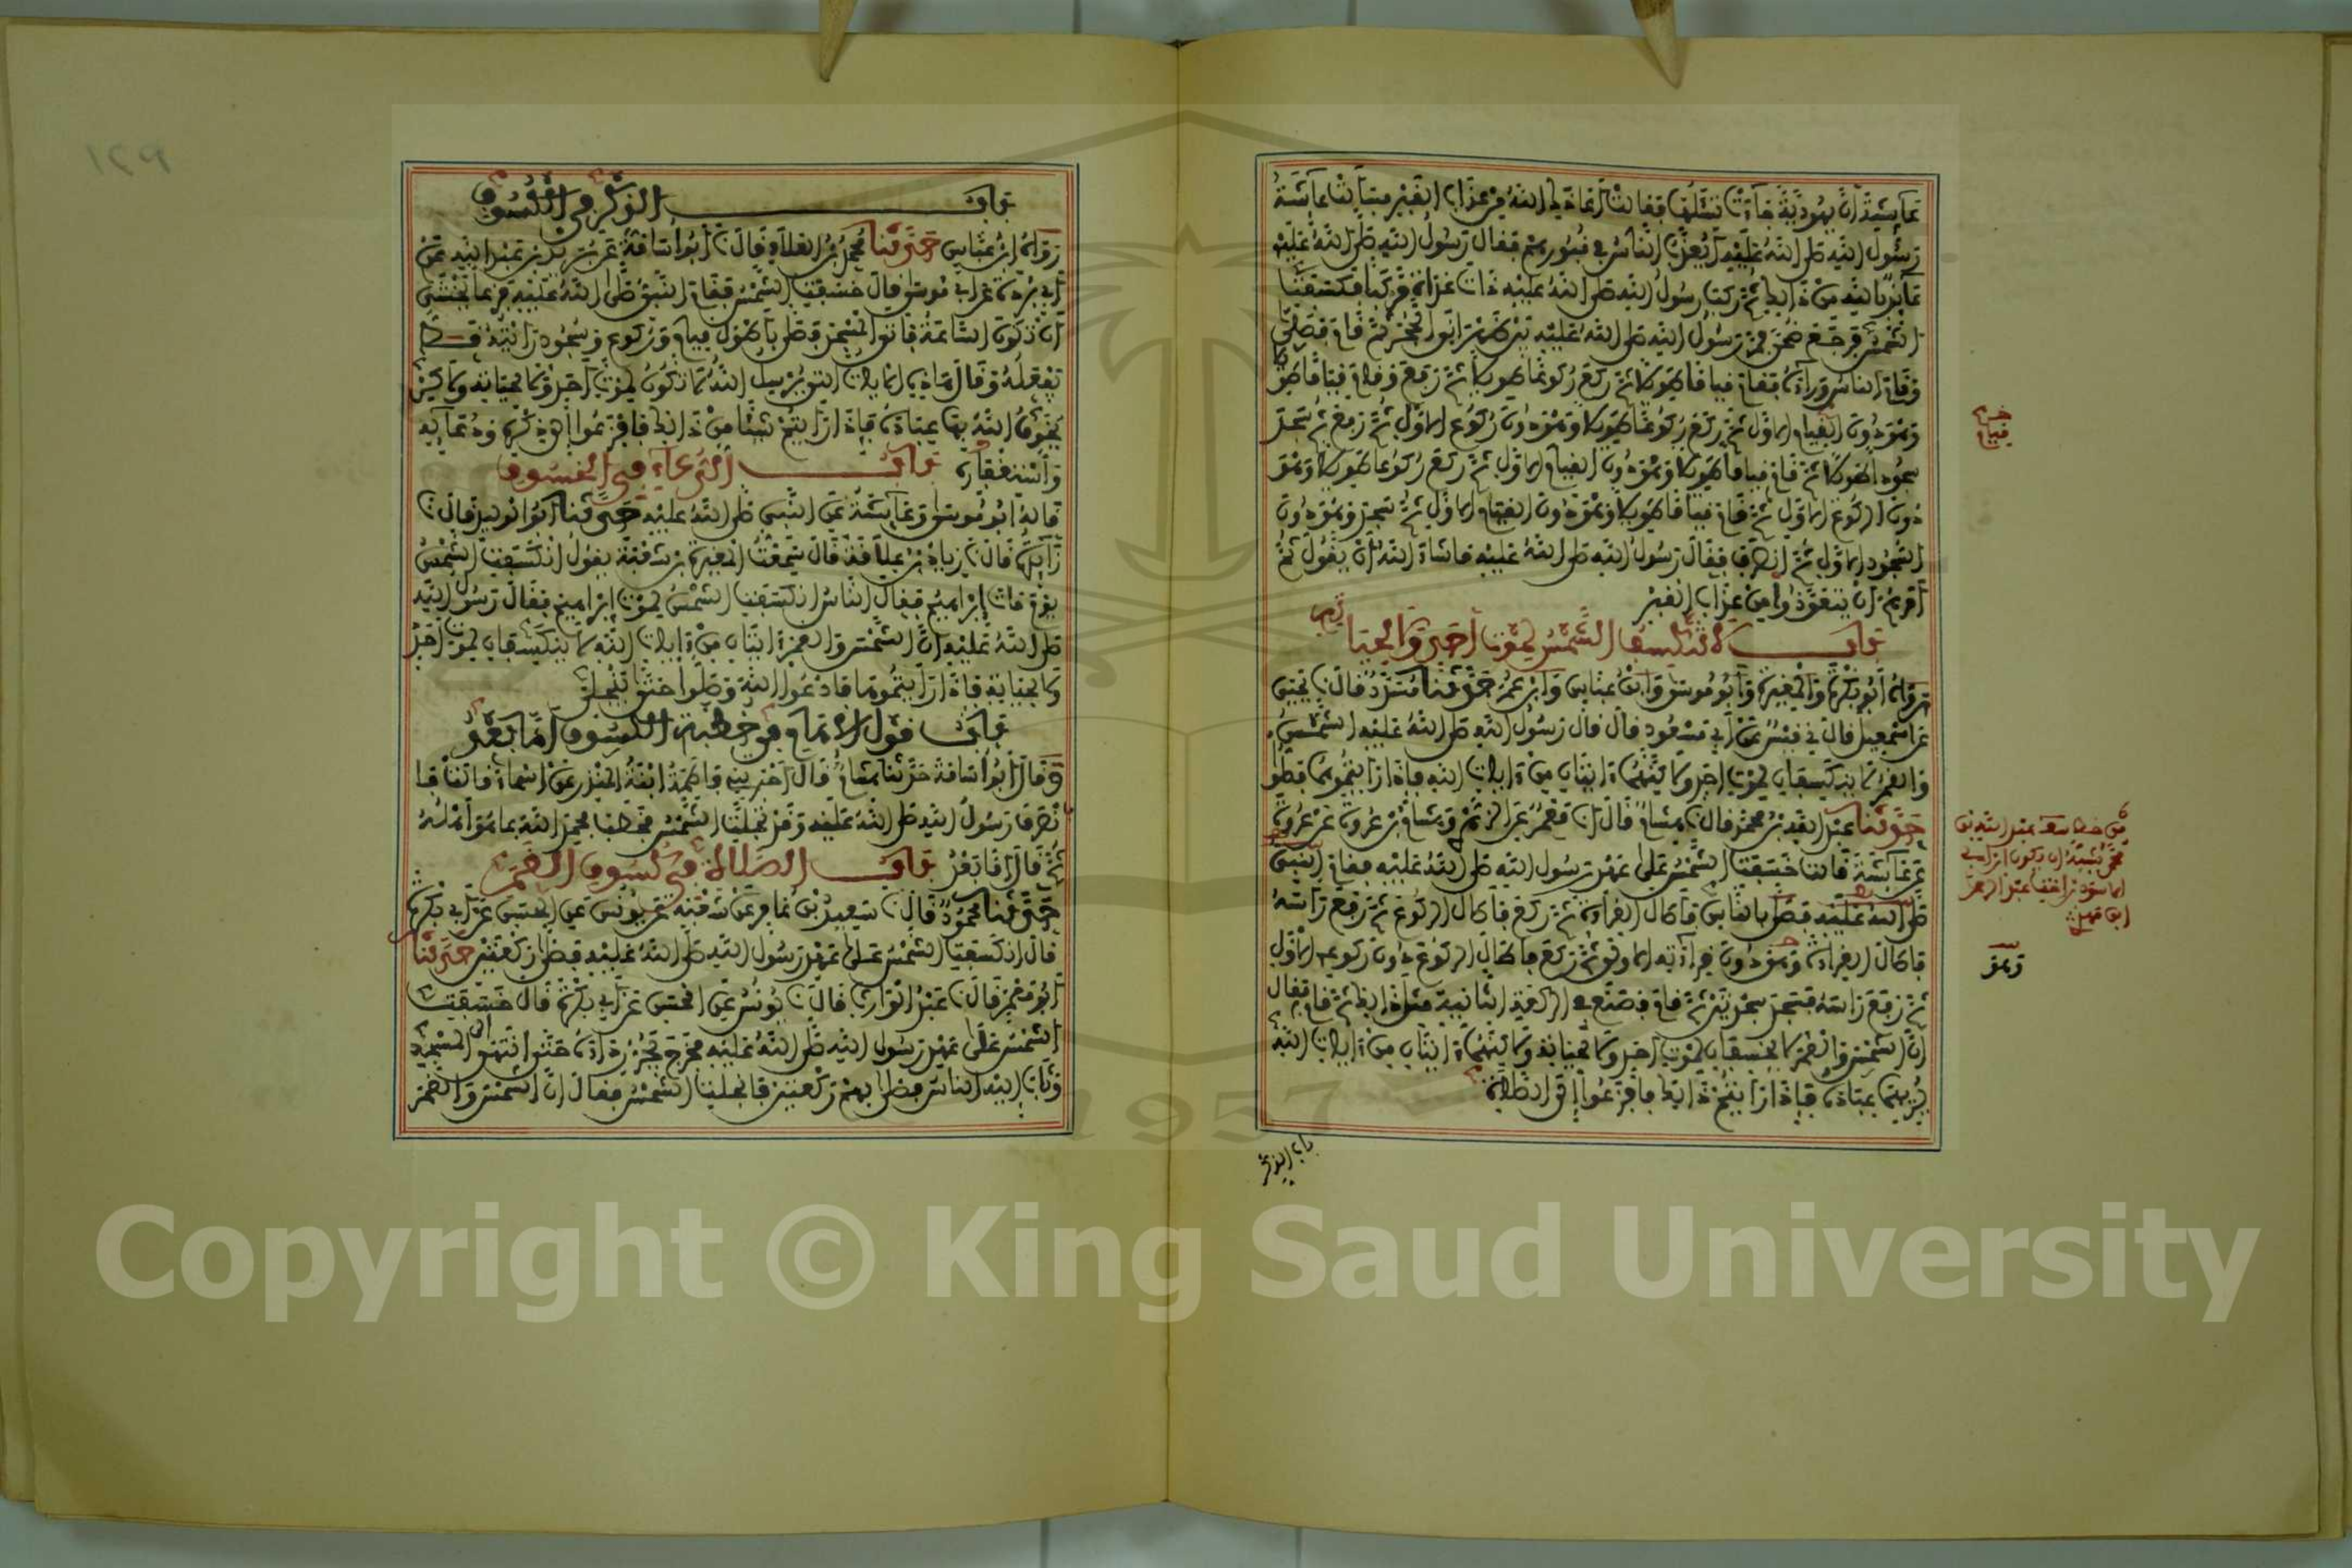 عائشة أن يهودية جاءت تسئلها فقالت أعاذك الله من عذاب القبر فسألت عائشة
رسول الله صلى الله عليه أيعذب الناس في قبورهم فقال رسول الله صلى الله عليه
عائذا بالله من ذلك ثم ركب رسول الله صلى الله عليه ذات غداة مركبا فكسفت
الشمس فرجع ضحى فمر رسول الله صلى الله عليه بين ظهراني الحجر ثم قام فصلى
وقام الناس وراءه فقام قياما طويلا ثم ركع ركوعا طويلا ثم رفع وقام قياما طويلا
وهو دون القيام الأول ثم ركع ركوعا طويلا وهو دون ركوع الأول ثم رفع ثم سجد
سجودا طويلا ثم قام قياما طويلا وهو دون القيام الأول ثم ركع ركوعا طويلا وهو
دون الركوع الأول ثم قام قياما طويلا وهو دون القيام الأول ثم سجد وهو دون
السجود الأول ثم انصرف فقال رسول الله صلى الله عليه ما شاء الله أن يقول ثم
أمرهم أن يتعوذوا من عذاب القبر
باب لا تنكسف الشمس لموت أحد ولا لحياته
رواه أبو بكرة والمغيرة وأبو موسى وابن عباس وابن عمر حدثنا مسدد قال نا يحيى
عن إسمعيل قال ني قيس عن أبي مسعود قال قال رسول الله صلى الله عليه الشمس
والقمر لا ينكسفان لموت أحد ولكنهما آيتان من آيات الله فإذا رأيتموهما فصلوا
حدثنا عبد الله بن محمد قال نا هشام قال نا معمر عن الزهري وهشام بن عروة عن عروة
عن عائشة قالت خسفت الشمس على عهد رسول الله صلى الله عليه فقام النبي
صلى الله عليه فصلى بالناس فأطال القراءة ثم ركع فأطال الركوع ثم رفع رأسه
فأطال القراءة وهو دون قراءته الأولى ثم ركع فأطال الركوع دون ركوعه الأول
ثم رفع رأسه فسجد سجدتين ثم قام فصنع في الركعة الثانية مثل ذلك ثم قام فقال
إن الشمس والقمر لا يخسفان لموت أحد ولا لحياته ولكنهما آيتان من آيات الله
يريهما عباده فإذا رأيتم ذلك فافزعوا إلى الصلاة
باب الذكر
قيام
وهو
باب الذكر في الكسوف
رواه ابن عباس حدثنا محمد بن العلاء قال نا أبو أسامة عن بريد بن عبد الله عن
أبي بردة عن أبي موسى قال خسفت الشمس فقام النبي صلى الله عليه فزعا يخشى
أن تكون الساعة فأتى المسجد فصلى بأطول قيام وركوع وسجود رأيته قط
يفعله وقال هذه الآيات التي يرسل الله لا تكون لموت أحد ولا لحياته ولكن
يخوف الله بها عباده فإذا رأيتم شيئا من ذلك فافزعوا إلى ذكره ودعائه
واستغفاره باب الدعاء في الخسوف
قاله أبو موسى وعائشة عن النبي صلى الله عليه حدثنا أبو الوليد قال نا
زائدة قال نا زياد بن علاقة قال سمعت المغيرة بن شعبة يقول انكسفت الشمس
يوم مات إبراهيم فقال الناس انكسفت الشمس لموت إبراهيم فقال رسول الله
صلى الله عليه إن الشمس والقمر آيتان من آيات الله لا ينكسفان لموت أحد
ولا لحياته فإذا رأيتموها فادعوا الله وصلوا حتى تنجلي
باب قول الإمام في خطبة الكسوف أما بعد
وقال أبو أسامة حدثنا هشام قال أخبرتني فاطمة ابنة المنذر عن أسماء قالت فا
نصرف رسول الله صلى الله عليه وقد تجلت الشمس فخطب فحمد الله بما هو أهله
ثم قال أما بعد باب الصلاة في كسوف القمر
حدثنا محمود قال نا سعيد بن عامر عن شعبة عن يونس عن الحسن عن أبي بكرة
قال انكسفت الشمس على عهد رسول الله صلى الله عليه فصلى ركعتين حدثنا
أبو معمر قال نا عبد الوارث قال نا يونس عن الحسن عن أبي بكرة قال خسفت
الشمس على عهد رسول الله صلى الله عليه فخرج يجر رداءه حتى انتهى إلى المسجد
وثاب إليه الناس فصلى بهم ركعتين فانجلت الشمس فقال إن الشمس والقمر
١٢٩
1957
Copyright © King Saud University